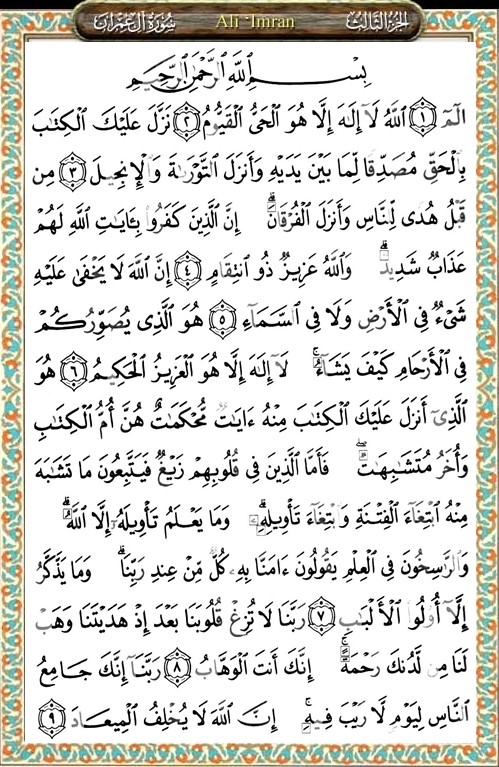 سُورَةُ آلِ عِمْرَان Ali `Imran الجُزْءُ الثَّالِثُ
بِسْمِ اللَّهِ الرَّحْمَٰنِ الرَّحِيمِ
الٓمٓ ١ اللَّهُ لَآ إِلَٰهَ إِلَّا هُوَ الْحَىُّ الْقَيُّومُ ٢ نَزَّلَ عَلَيْكَ الْكِتَٰبَ
بِالْحَقِّ مُصَدِّقًا لِّمَا بَيْنَ يَدَيْهِ وَأَنزَلَ التَّوْرَىٰةَ وَالْإِنجِيلَ ٣ مِن
قَبْلُ هُدًى لِّلنَّاسِ وَأَنزَلَ الْفُرْقَانَ ۗ إِنَّ الَّذِينَ كَفَرُوا۟ بِـَٔايَٰتِ اللَّهِ لَهُمْ
عَذَابٌ شَدِيدٌ ۗ وَاللَّهُ عَزِيزٌ ذُو انتِقَامٍ ٤ إِنَّ اللَّهَ لَا يَخْفَىٰ عَلَيْهِ
شَىْءٌ فِى الْأَرْضِ وَلَا فِى السَّمَآءِ ٥ هُوَ الَّذِى يُصَوِّرُكُمْ
فِى الْأَرْحَامِ كَيْفَ يَشَآءُ ۚ لَآ إِلَٰهَ إِلَّا هُوَ الْعَزِيزُ الْحَكِيمُ ٦ هُوَ
الَّذِىٓ أَنزَلَ عَلَيْكَ الْكِتَٰبَ مِنْهُ ءَايَٰتٌ مُّحْكَمَٰتٌ هُنَّ أُمُّ الْكِتَٰبِ
وَأُخَرُ مُتَشَٰبِهَٰتٌ ۖ فَأَمَّا الَّذِينَ فِى قُلُوبِهِمْ زَيْغٌ فَيَتَّبِعُونَ مَا تَشَٰبَهَ
مِنْهُ ابْتِغَآءَ الْفِتْنَةِ وَابْتِغَآءَ تَأْوِيلِهِۦ ۗ وَمَا يَعْلَمُ تَأْوِيلَهُۥٓ إِلَّا اللَّهُ ۗ
وَالرَّٰسِخُونَ فِى الْعِلْمِ يَقُولُونَ ءَامَنَّا بِهِۦ كُلٌّ مِّنْ عِندِ رَبِّنَا ۗ وَمَا يَذَّكَّرُ
إِلَّآ أُو۟لُوا۟ الْأَلْبَٰبِ ٧ رَبَّنَا لَا تُزِغْ قُلُوبَنَا بَعْدَ إِذْ هَدَيْتَنَا وَهَبْ
لَنَا مِن لَّدُنكَ رَحْمَةً ۚ إِنَّكَ أَنتَ الْوَهَّابُ ٨ رَبَّنَآ إِنَّكَ جَامِعُ
النَّاسِ لِيَوْمٍ لَّا رَيْبَ فِيهِ ۚ إِنَّ اللَّهَ لَا يُخْلِفُ الْمِيعَادَ ٩